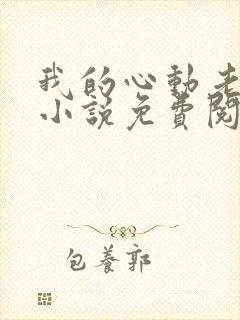 我的心動老
小說免費閱
包養郭